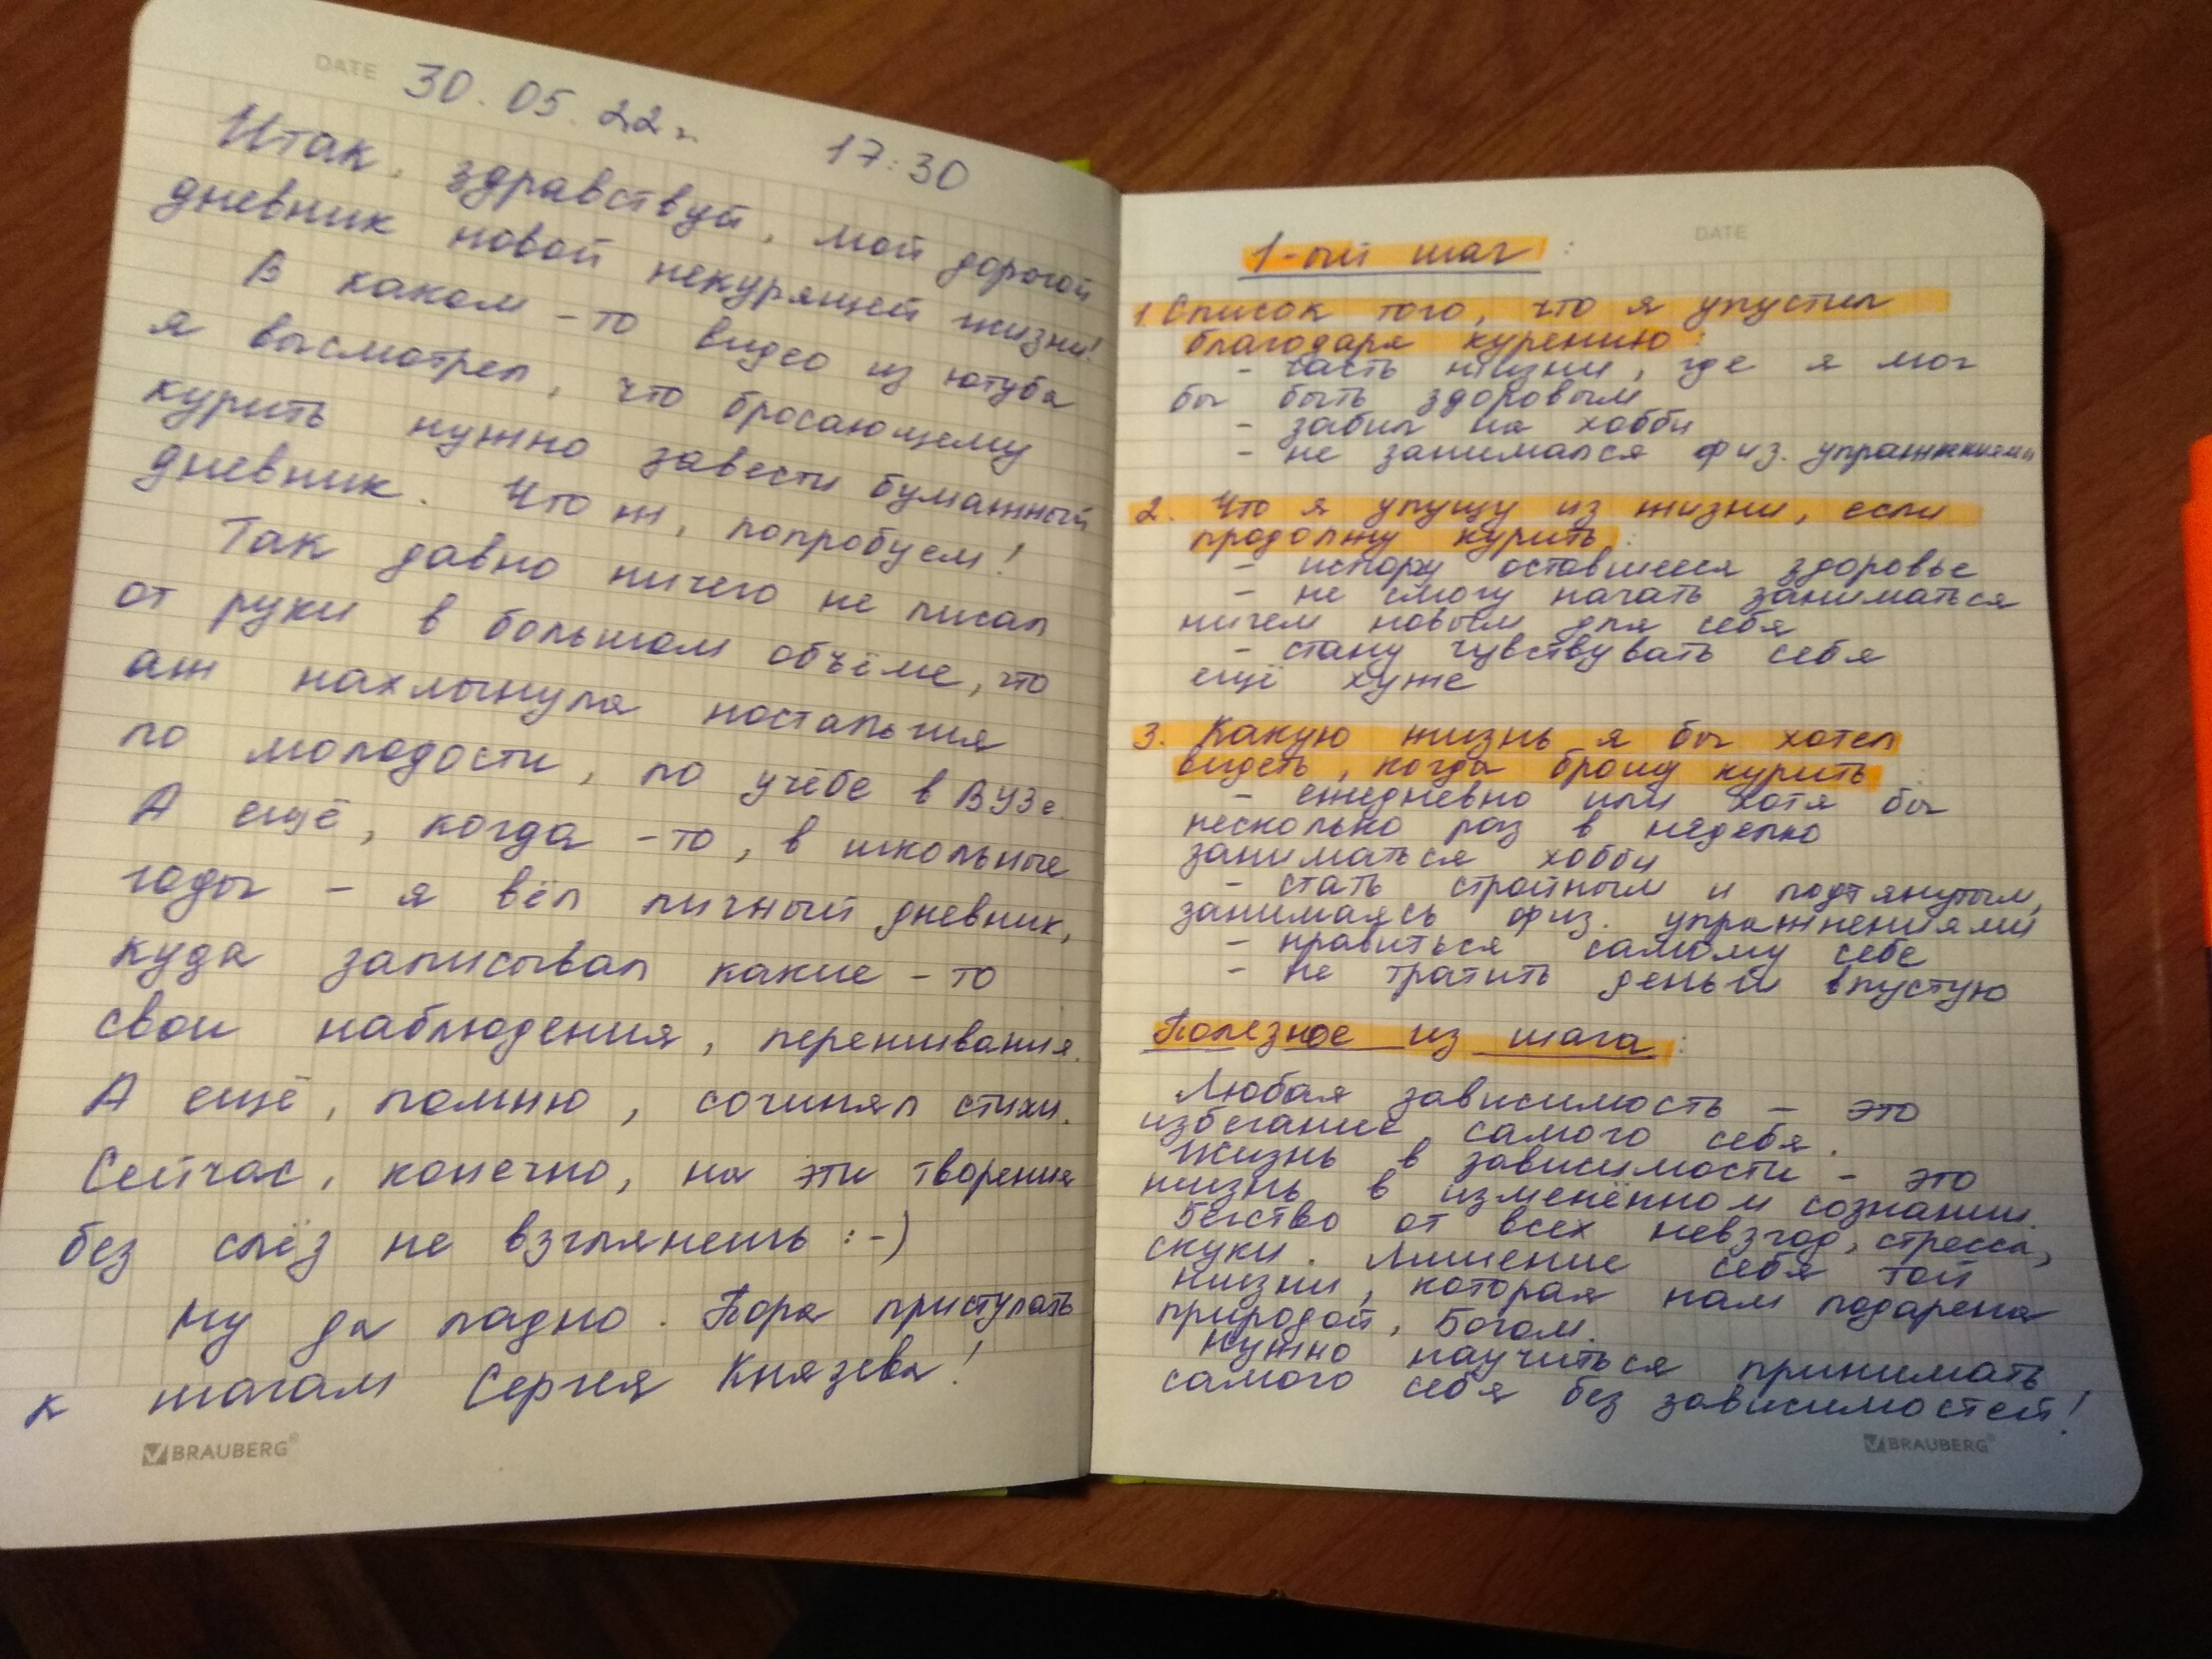 DATE 30.05.22г. 17:30
Итак, здравствуй, мой дорогой
дневник новой некурящей жизни!
В каком-то видео из ютуба
я высмотрел, что бросающему
курить нужно завести бумажный
дневник. Что ж, попробуем!
Так давно ничего не писал
от руки в большом объёме, что
аж нахлынула ностальгия
по молодости, по учёбе в ВУЗе.
А ещё, когда-то, в школьные
годы - я вёл личный дневник,
куда записывал какие-то
свои наблюдения, переживания.
А ещё, помню, сочинял стихи.
Сейчас, конечно, на эти творения
без слёз не взглянешь :-)
Ну да ладно. Пора приступать
к шагам Сергея Князева!
BRAUBERG®
DATE
1-ый шаг:
1. Список того, что я упустил
благодаря курению:
- часть жизни, где я мог
бы быть здоровым
- забил на хобби
- не занимался физ. упражнениями
2. Что я упущу из жизни, если
продолжу курить:
- испорчу оставшееся здоровье
- не смогу начать заниматься
ничем новым для себя
- стану чувствувать себя
ещё хуже
3. Какую жизнь я бы хотел
видеть, когда брошу курить:
- ежедневно или хотя бы
несколько раз в неделю
заниматься хобби
- стать стройным и подтянутым,
занимаясь физ. упражнениями
- нравиться самому себе
- не тратить деньги впустую
Полезное из шага:
Любая зависимость - это
избегание самого себя.
Жизнь в зависимости - это
жизнь в изменённом сознании.
Бегство от всех невзгод, стресса,
скуки. Лишение себя той
жизни, которая нам подарена
природой, Богом.
Нужно научиться принимать
самого себя без зависимостей!
BRAUBERG®